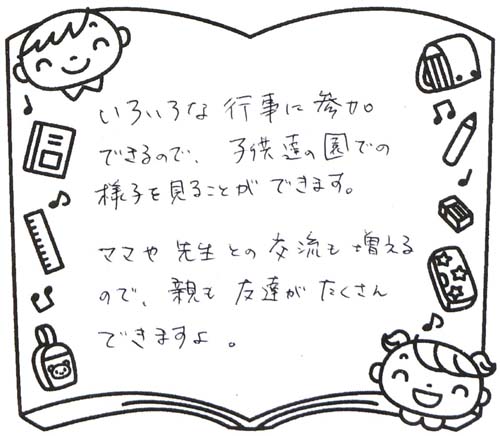 いろいろな行事に参加
できるので、子供達の園での
様子を見ることができます。
ママや先生との交流も増える
ので、親も友達がたくさん
できますよ。